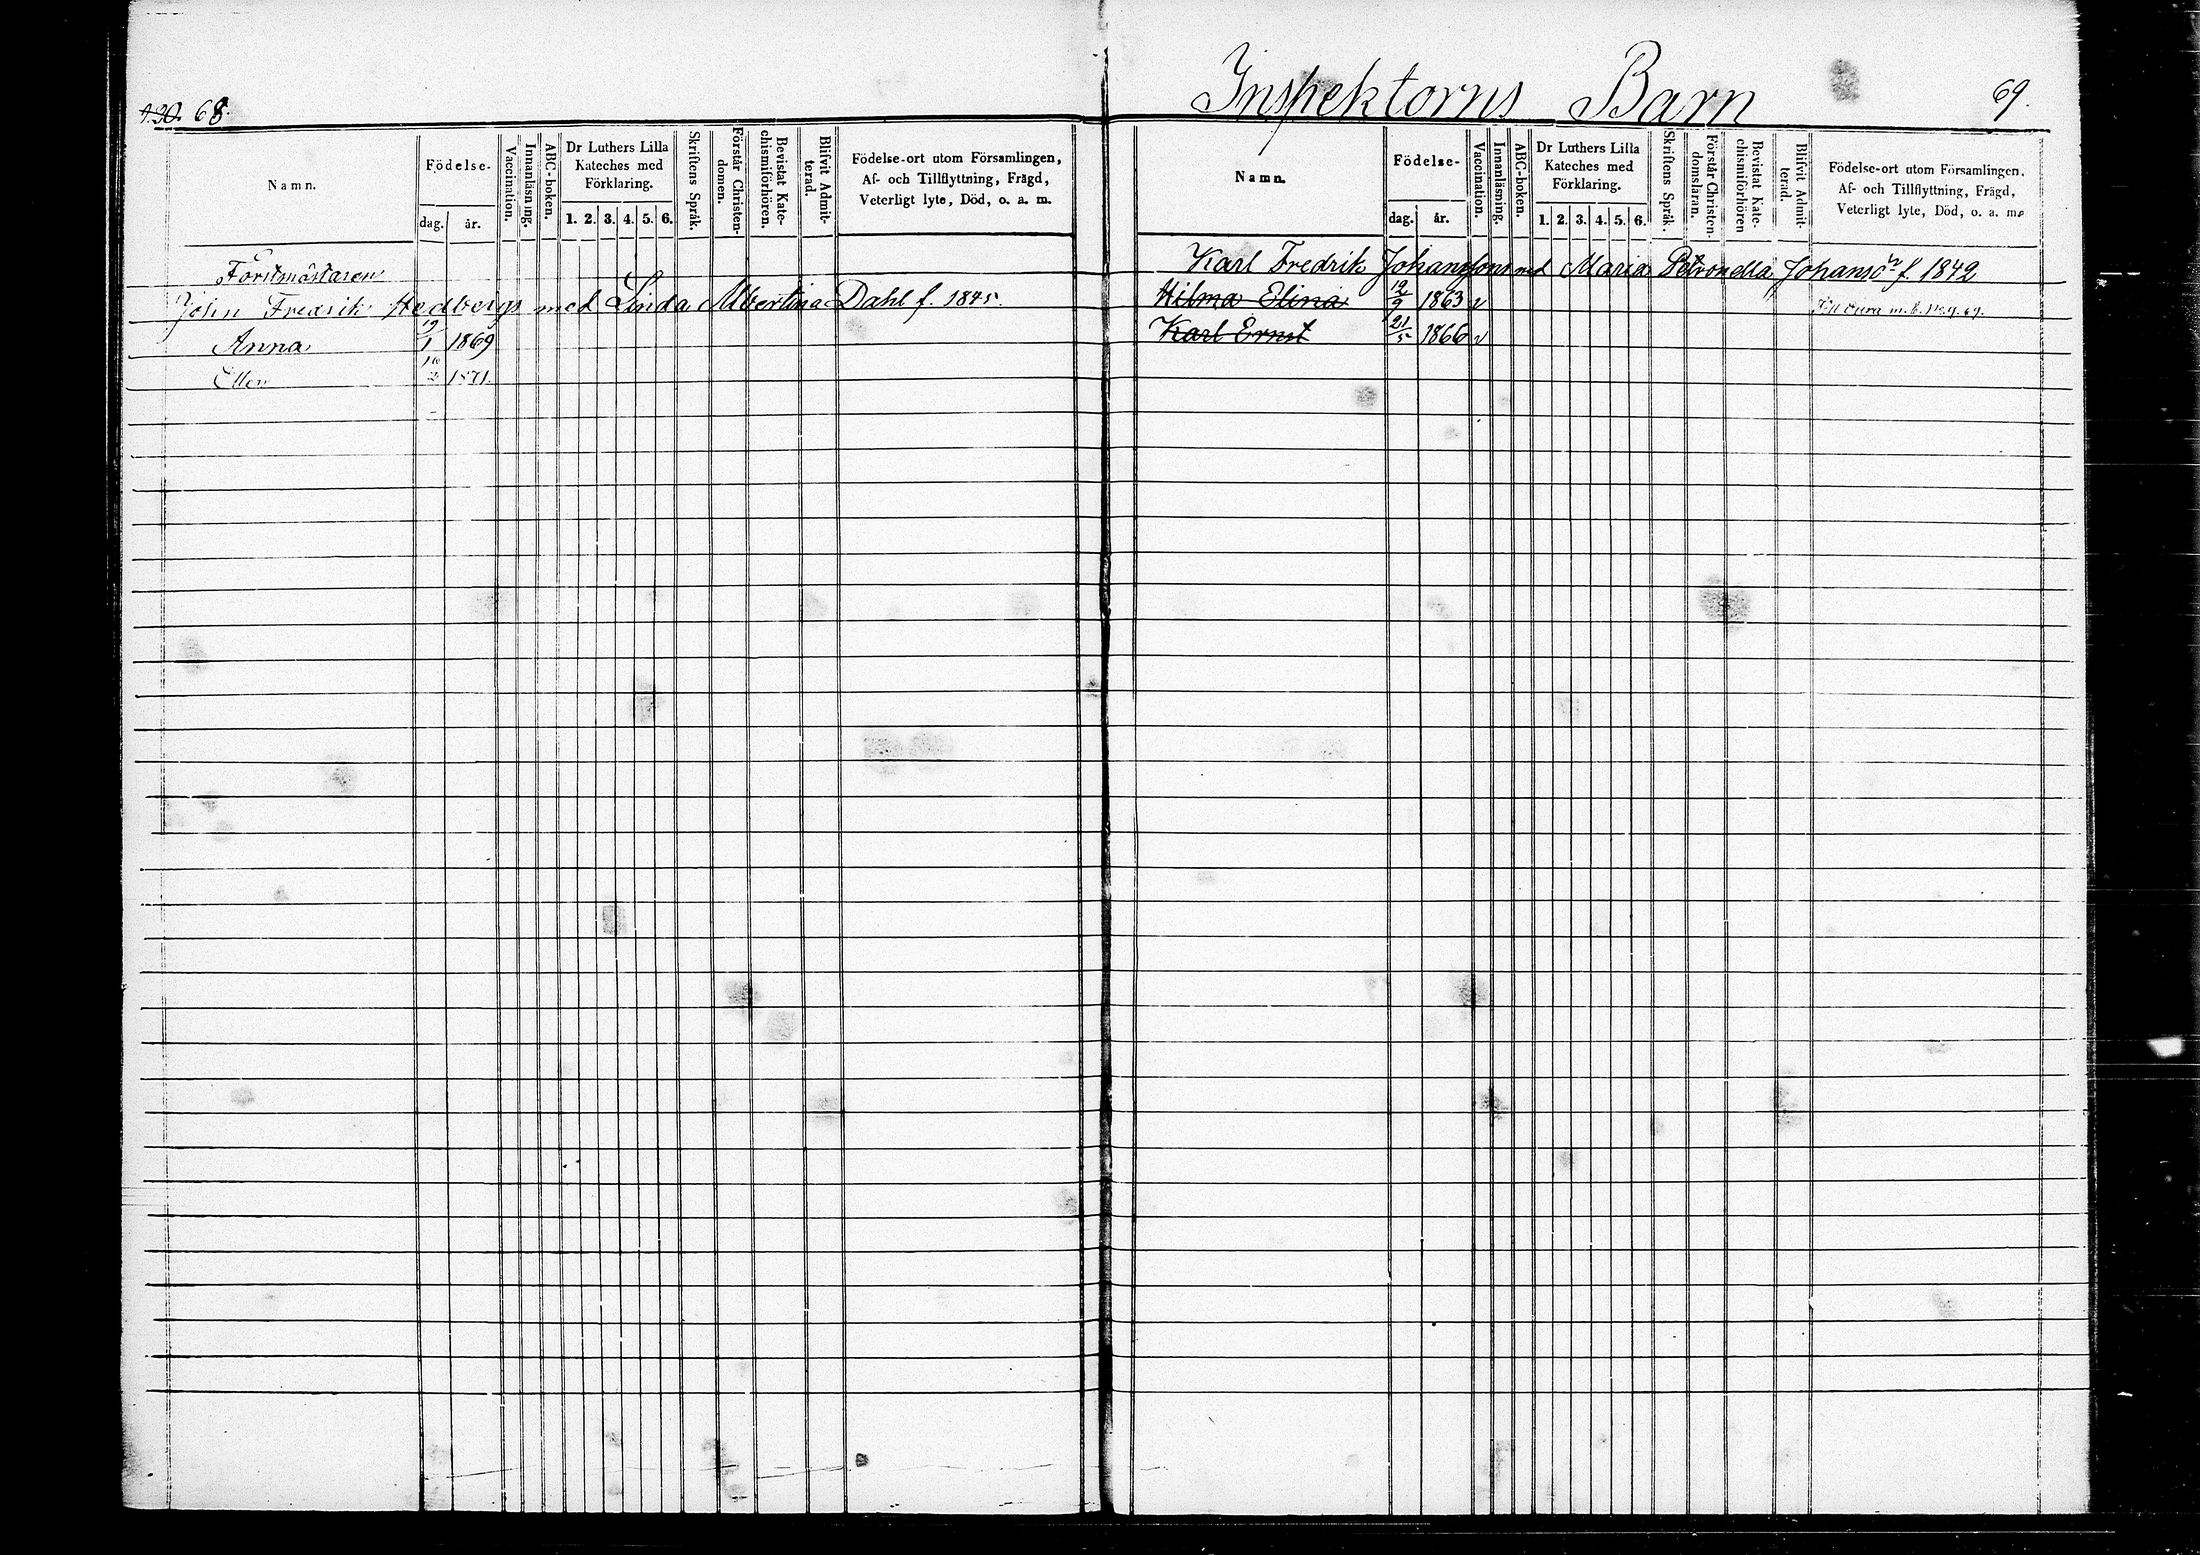 68.
Namn.
Födelse-
dag.
år.
Vaccination.
Innanläsning.
ABC-boken.
Dr Luthers Lilla
Kateches med
Förklaring.
1. 2. 3. 4. 5. 6.
Skriftens Språk.
Förstår Christen-
domen.
Bevistat Kate-
chismiförhören.
Blifvit Admit-
terad.
Födelse-ort utom Församlingen,
Af- och Tillflyttning, Frägd,
Veterligt lyte, Död, o. a. m.
Forstmästaren
John Fredrik Hedbergs med Linda Albertina Dahl f. 1845.
Anna 19/1 1869
Ellen 1871.
Inspektorns Barn 69.
Namn.
Födelse-
dag.
år.
Vaccination.
Innanläsning.
ABC-boken.
Dr Luthers Lilla
Kateches med
Förklaring.
1. 2. 3. 4. 5. 6.
Skriftens Språk.
Förstår Christen-
domsläran.
Bevistat Kate-
chismiförhören
Blifvit Admit-
terad.
Födelse-ort utom Församlingen,
Af- och Tillflyttning, Frägd,
Veterligt lyte, Död, o. a. m.
Karl Fredrik Johanssons med Maria Petronella Johansson f. 1842
Hilma Elina 12/9 1863 v
Karl Ernst 21/5 1866 v